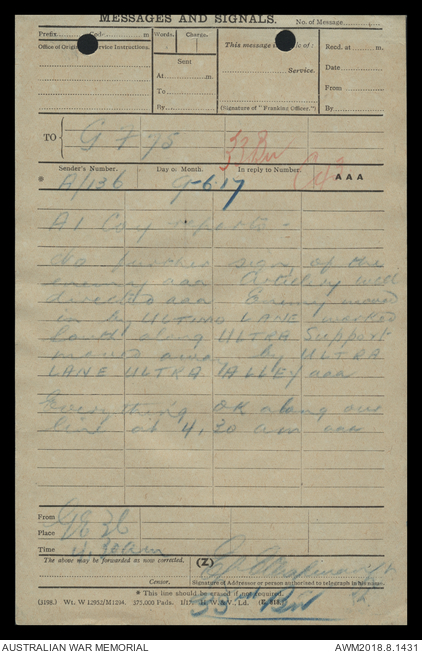 MESSAGES AND SIGNALS.
No. of Message
Prefix Code m
Words. Charge.
Office of Origin and Service Instructions.
This message is on a/c of:
Recd. at m.
Sent
Date
At m.
Service.
To
From
By
(Signature of "Franking Officer.")
By
TO
33 Bn
Sender's Number. Day of Month. In reply to Number. AAA
A/136 9-6-17
A1 Coy reports :-
No further sign of the
enemy aaa Artillery well
directed aaa Enemy moved
in by ULTIMO LANE worked
South along ULTRA Support
moved away by ULTRA
LANE ULTRA ALLEY aaa
Everything OK along our
line at 4.30 am aaa
From
Place
Time 4.30am
The above may be forwarded as now corrected. (Z)
Censor. Signature of Addressor or person authorised to telegraph in his name.
* This line should be erased if not required.
(3198.) Wt. W 12952/M1294. 375,000 Pads.
33rd Bn
AUSTRALIAN WAR MEMORIAL
AWM2018.8.1431